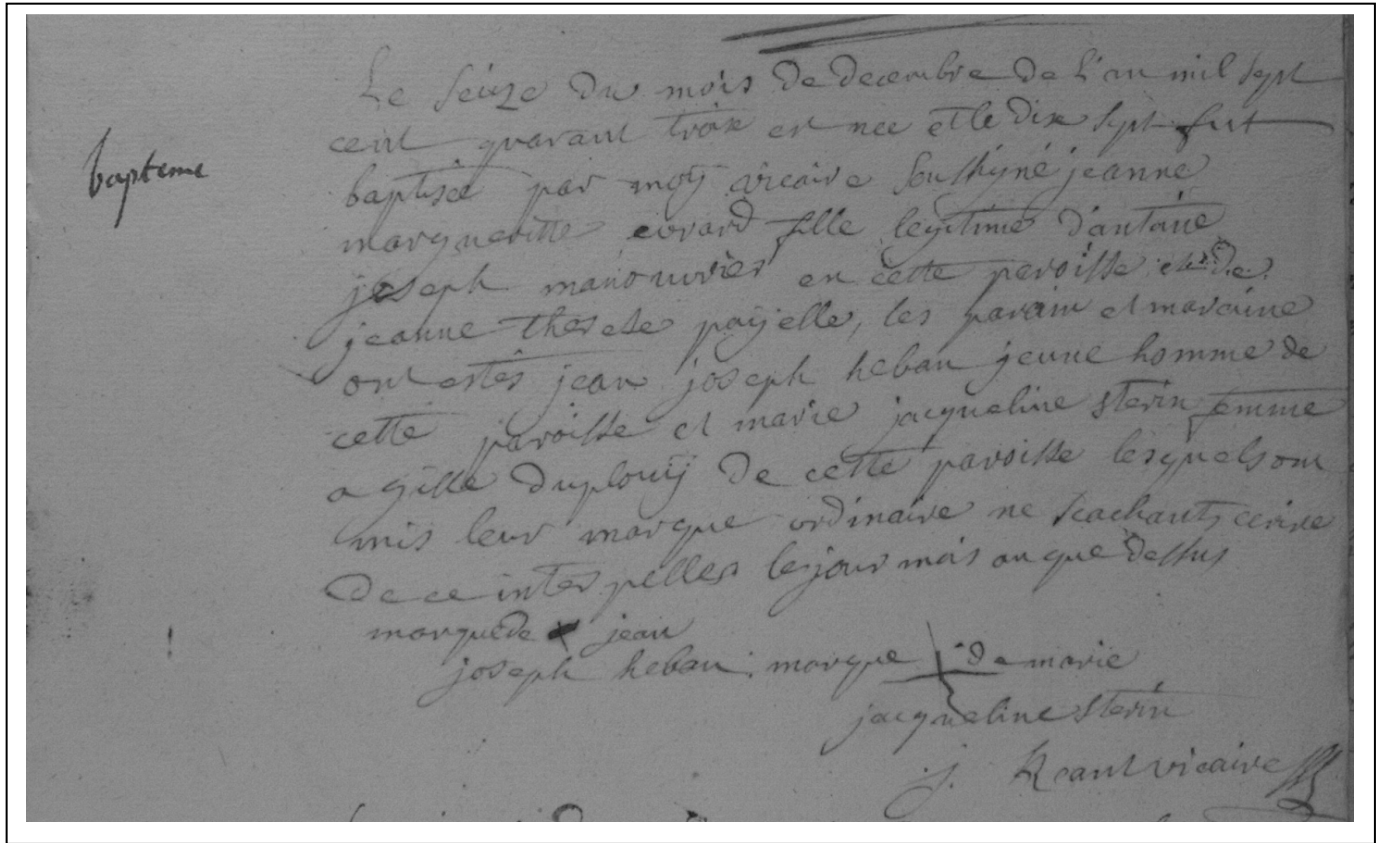 bapteme
Le seize du mois de decembre de l'an mil sept
cent quarant trois est nee et le dix sept fut
baptisée par moy vicaire soussigné jeanne
margueritte evrard fille legitime d'antoine
joseph manouvrier en cette paroisse et de
jeanne therese payelle, les parain et maraine
ont estés jean joseph heban jeune homme de
cette paroisse et marie jacqueline sterin femme
a gille duplouij de cette paroisse lesquels ont
mis leur marque ordinaire ne scachants ecrire
de ce interpelles les jour mois an que dessus
marque de jean
joseph heban. marque de marie
jacqueline sterin
j. vicaire